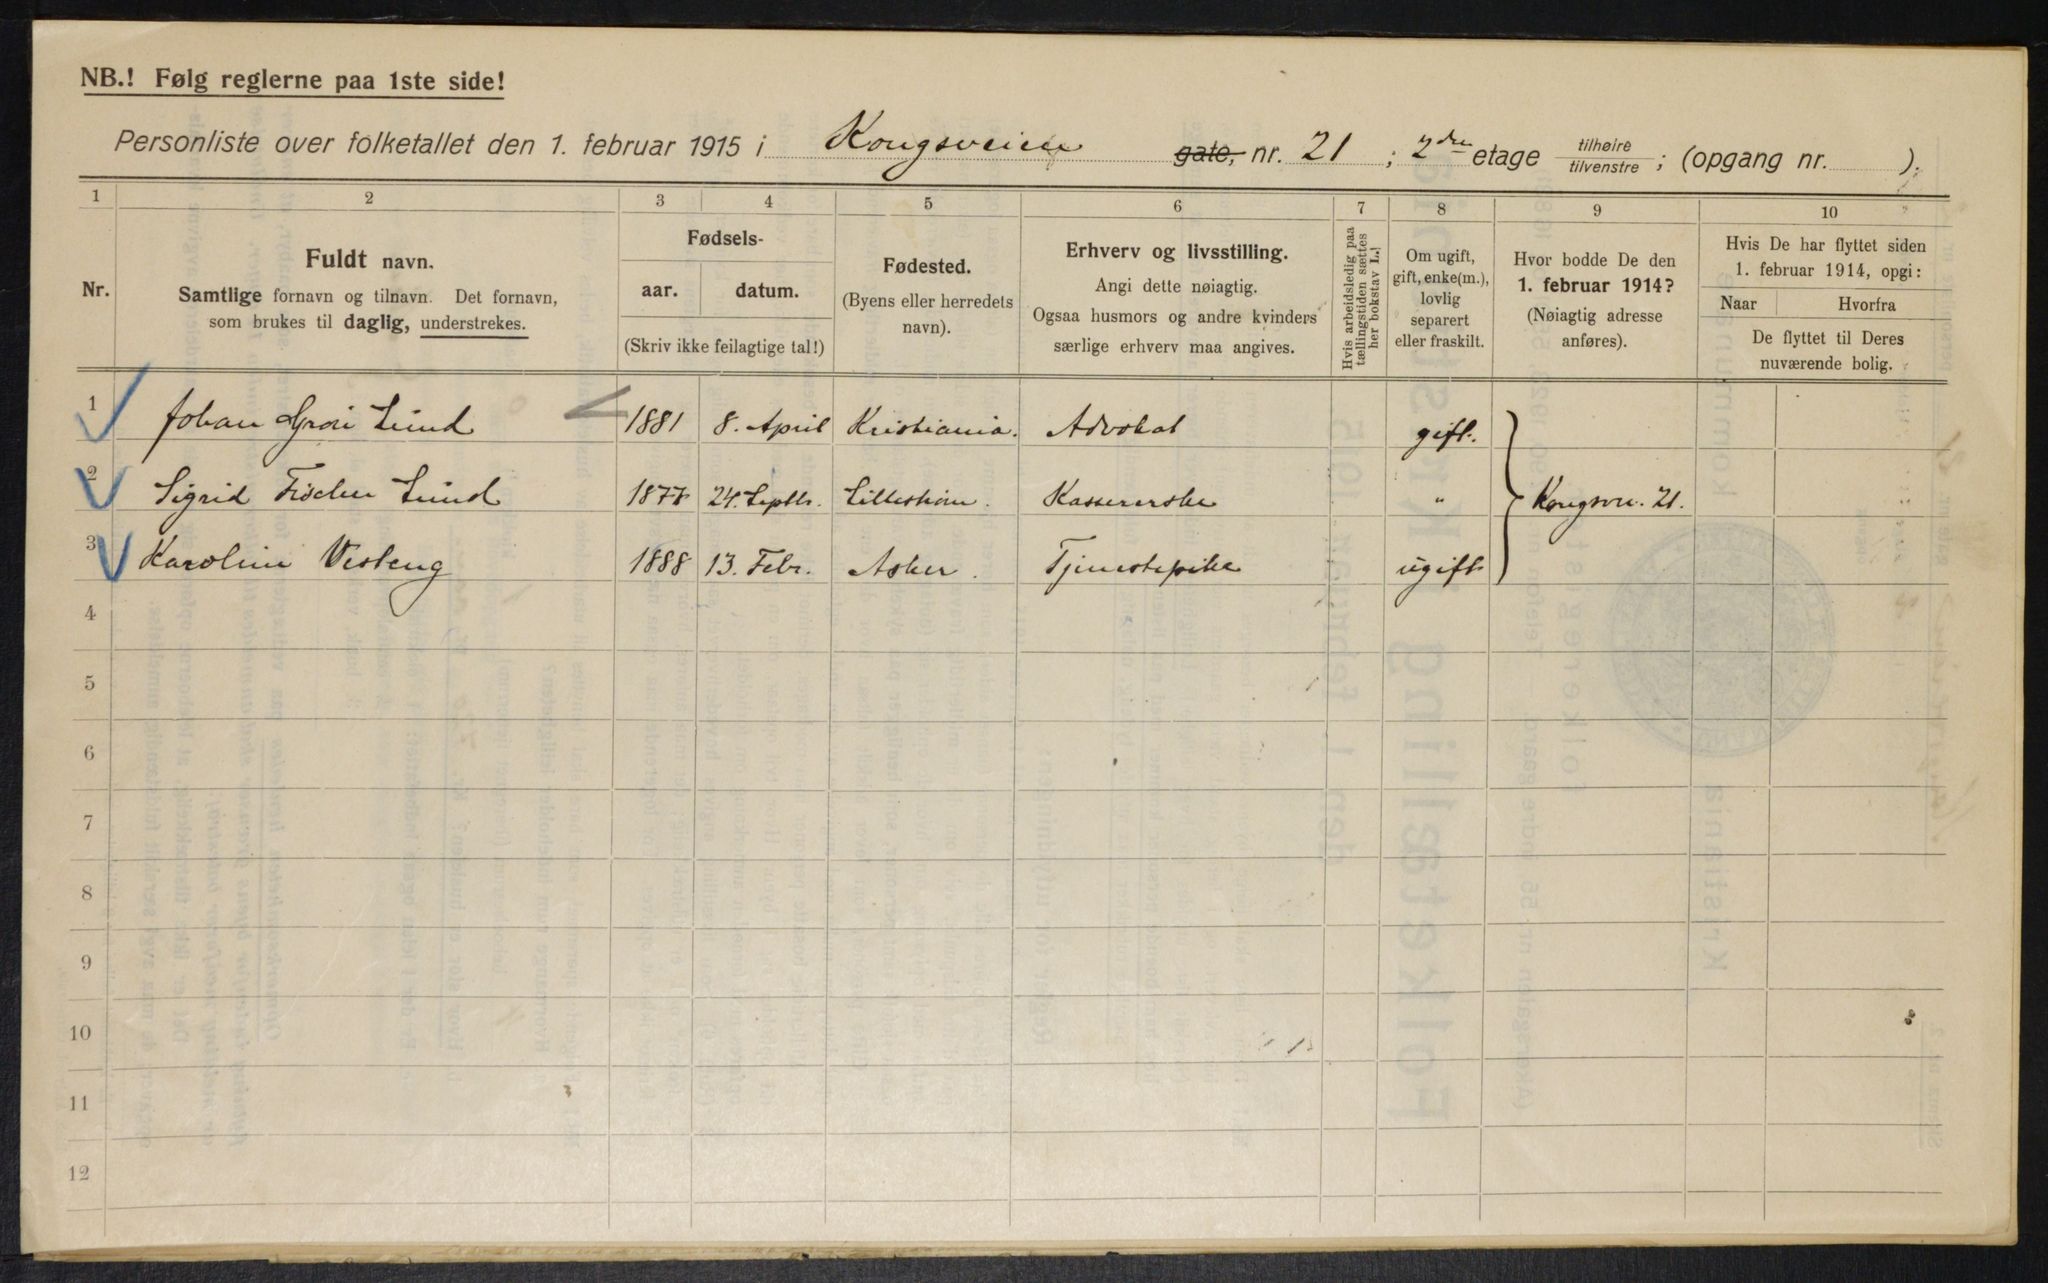 NB.! Følg reglerne paa 1ste side!
Personliste over folketallet den 1. februar 1915 i Kongsveien gate, nr. 21 ; 2den etage tilhøire tilvenstre ; (opgang nr. ).
1 2 3 4 5 6 7 8 9 10
Nr.
Fuldt navn.
Samtlige fornavn og tilnavn. Det fornavn,
som brukes til daglig, understrekes.
Fødsels-
aar. datum.
(Skriv ikke feilagtige tal!)
Fødested.
(Byens eller herredets
navn).
Erhverv og livsstilling.
Angi dette nøiagtig.
Ogsaa husmors og andre kvinders
særlige erhverv maa angives.
Hvis arbeidsledig paa
tællingstiden sættes
her bokstav L.!
Om ugift,
gift, enke(m.),
lovlig
separert
eller fraskilt.
Hvor bodde De den
1. februar 1914?
(Nøiagtig adresse
anføres).
Hvis De har flyttet siden
1. februar 1914, opgi:
Naar Hvorfra
De flyttet til Deres
nuværende bolig.
1 Johan Lund 1881 8. April Kristiania. Advokat gift.
2 Sigrid Fischer Lund 1877 24. Septbr. Lillestrøm. Kassererske " Kongsvn. 21.
3 Karoline Vesteng 1888 13. Febr. Asker. Tjenestepike ugift
4
5
6
7
8
9
10
11
12